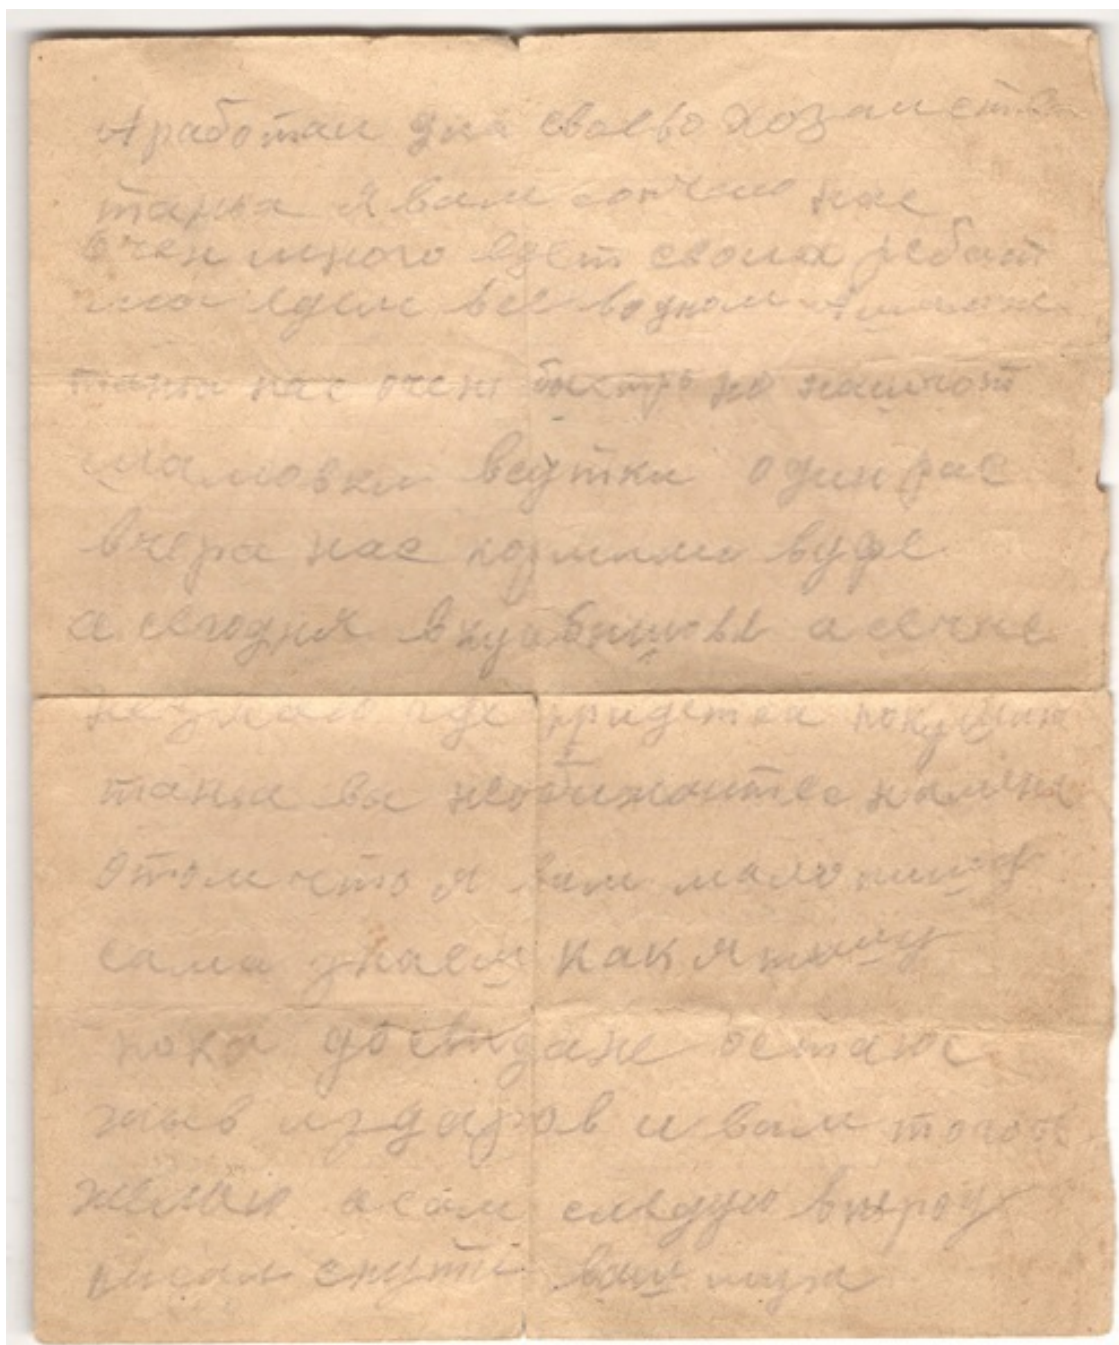 А работаи для своево хозаиства
таньа я вам сопчаю нас
очен много едет своих ребаят
мы едем все водном
таньа нас очен быстро но
всутки один рас
вчера нас кормили вуфе
а сегодня вкуабишове а
незнаем где придетса покушат
таньа вы необижаитес намена
отом что я вам мало пишу
сама знаеш как я пишу
пока досвидане остаюс
жыв издаров и вам тогоже
желаю асам следую вперод
писал спути ваш муш